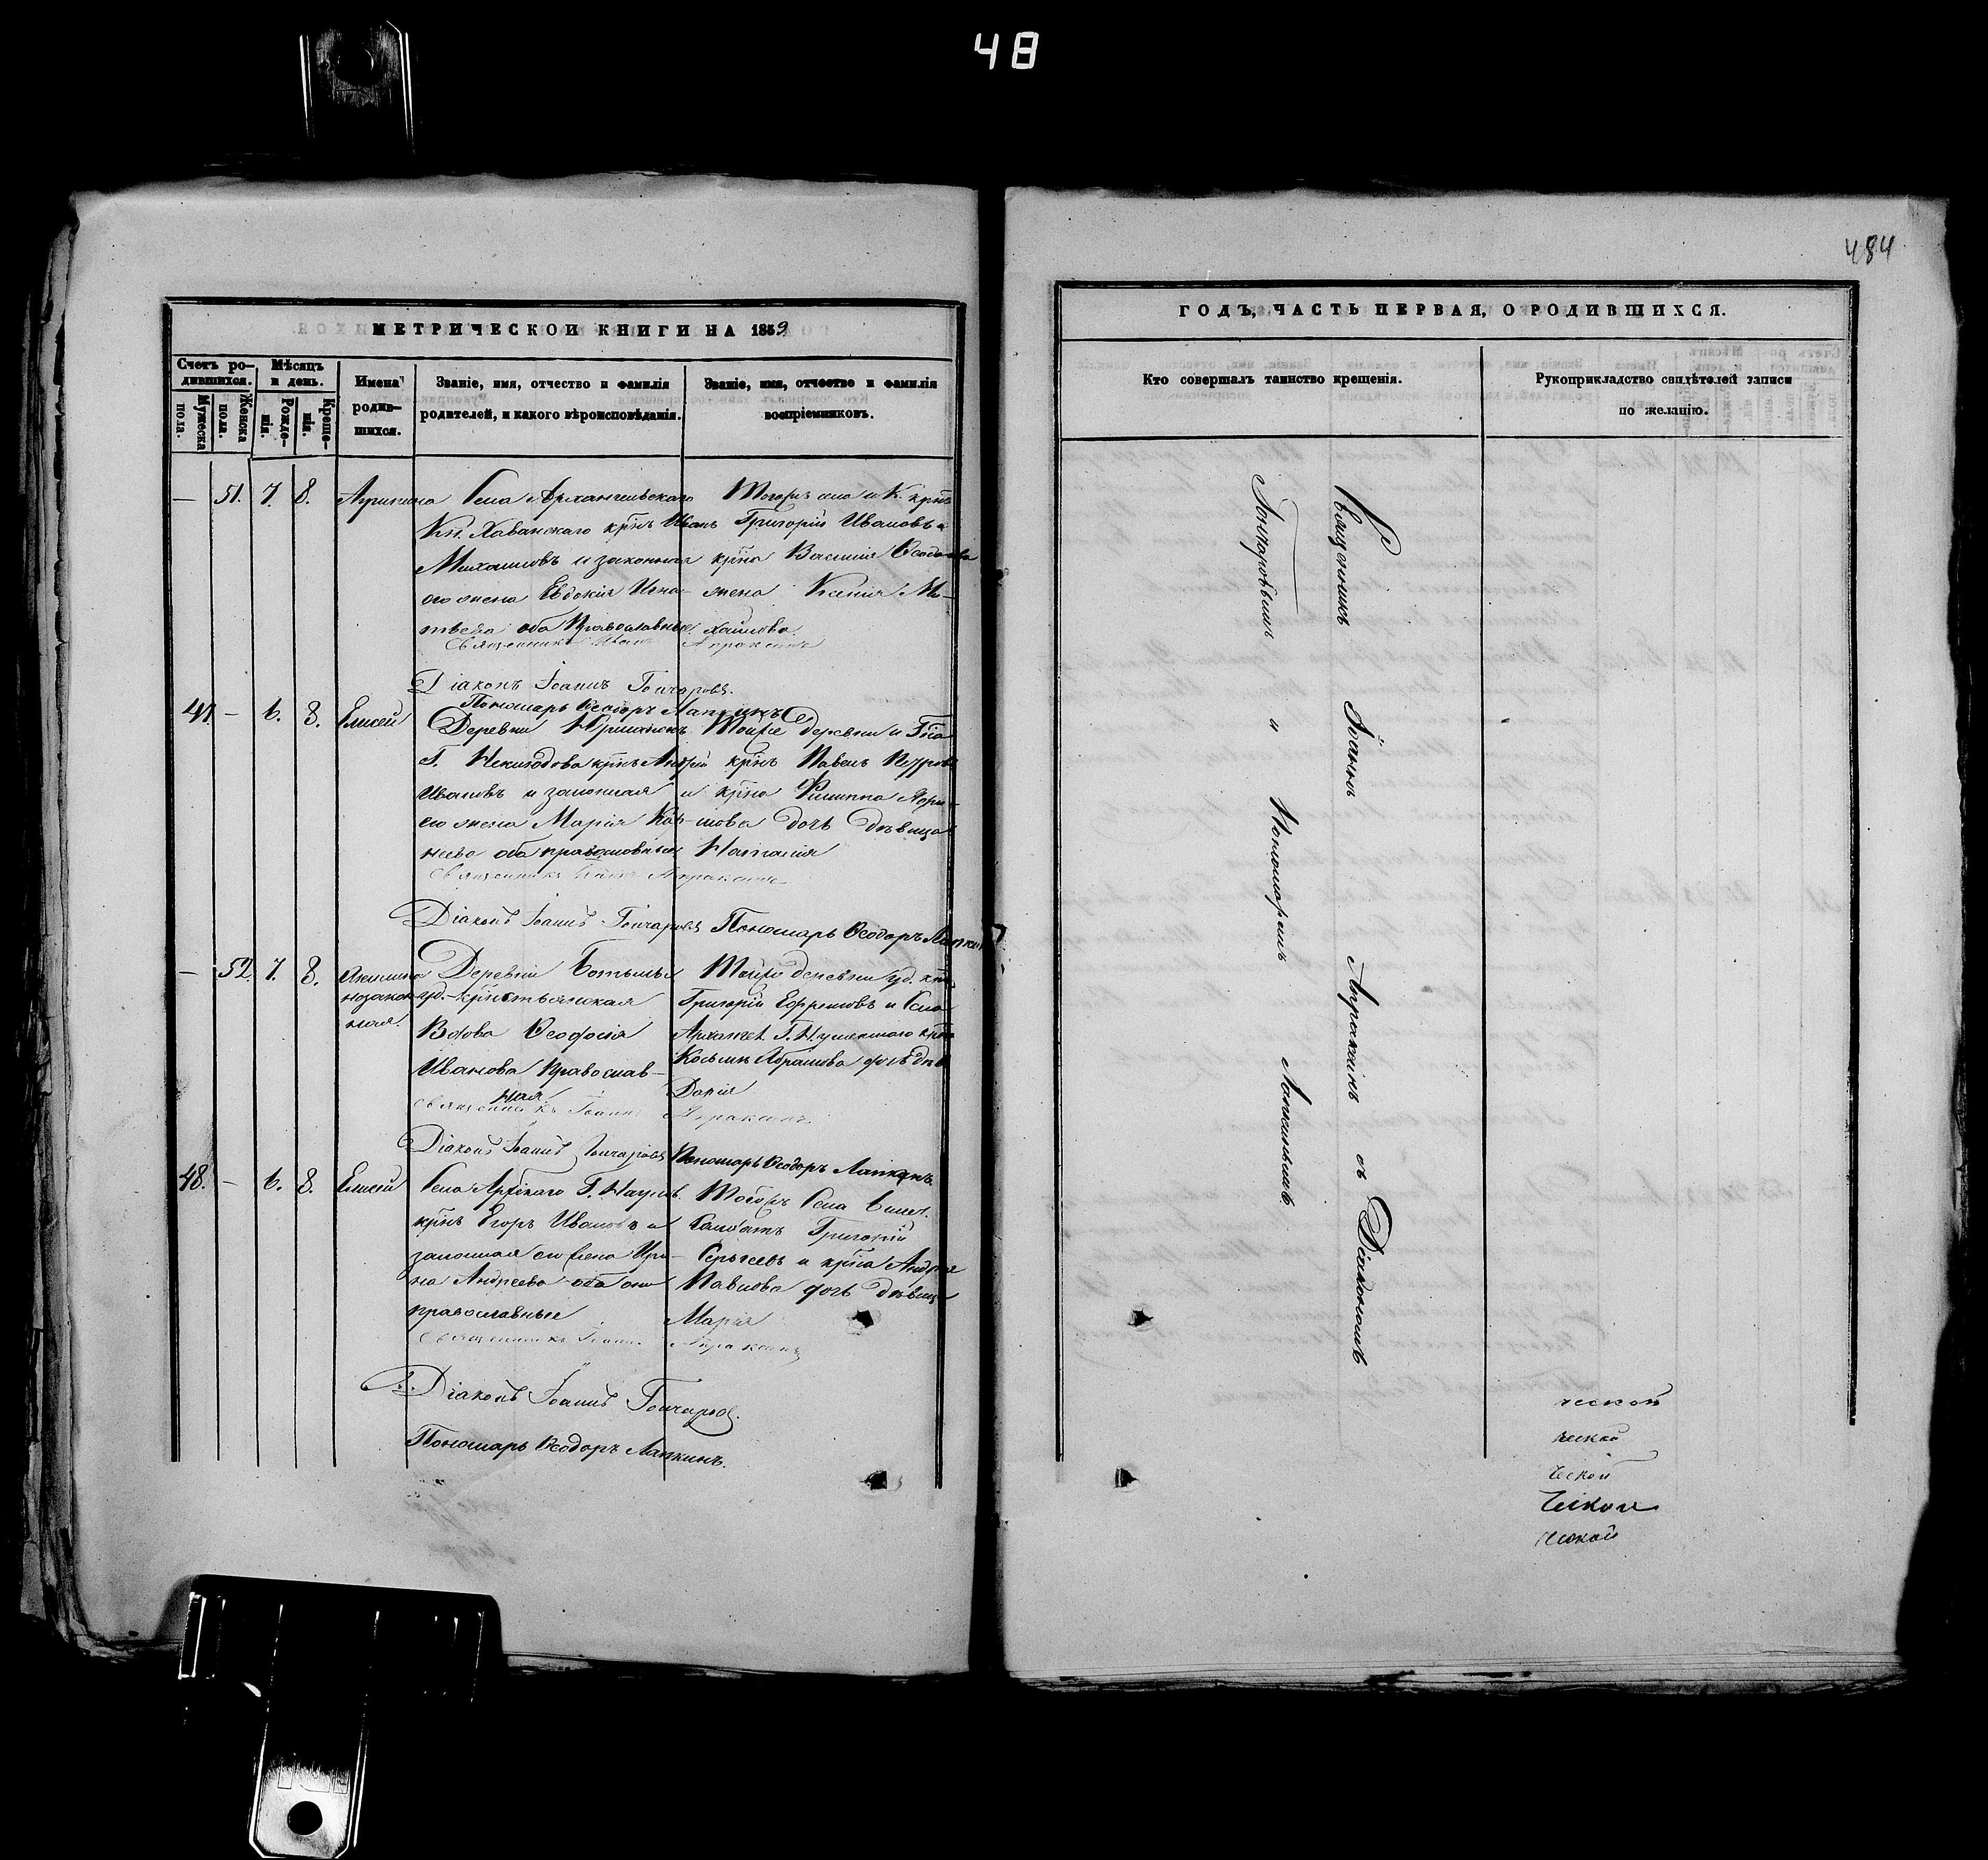 48
МЕТРИЧЕСКОЙ КНИГИ НА 1859
Счетъ ро-
дившихся.
Мужеска
пола.
Женска
пола.
Мѣсяцъ
и день.
Рожде-
нія.
Креще-
нія.
Имена
родив-
шихся.
Званіе, имя, отчество и фамилія
родителей, и какого вѣроисповѣданія.
Званіе, имя, отчество и фамилія
воспріемниковъ.
— 51. 7. 8.
Села Архангельскаго
Кн. Хаванскаго крнъ Иванъ
Михаиловъ и законная
его жена Евдокія Игна-
тьева оба Православные
Тогожъ села и К. крнъ
Григорій Ивановъ и
крна Василія
жена Ксенія Ми-
хайлова.
Священникъ Иванъ Апраксинъ
Діаконъ Іоаннъ Гончаровъ.
Пономарь Ѳеодоръ Лапкинъ
47. — 6. 8. Елисей
Деревни
Г. крнъ Андрей
Ивановъ и законная
его жена Марія Кор-
неева оба православные
Тойже деревни и Г-на
крнъ Павелъ Петровъ
и крна Филиппа Лари-
онова дочь дѣвица
Наталія
Священникъ Іоаннъ Апраксинъ
Діаконъ Іоаннъ Гончаровъ Пономарь Ѳеодоръ Лапкинъ
— 52. 7. 8. Акилина
незакон-
ная.
Деревни
уд. крестьянская
Вдова Ѳеодосія
Иванова Православ-
ная
Тойже деревни уд. крнъ
Григорій Ефремовъ и Села
Архангел. Г.
Косьмы Абрамова дочь дѣв.
Дарія
Священникъ Іоаннъ Апраксинъ
Діаконъ Іоаннъ Гончаровъ Пономарь Ѳеодоръ Лапкинъ.
48. — 6. 8. Елисей
Села Г. Наумов.
крнъ Егоръ Ивановъ и
законная его жена Ири-
на Андреева оба они
православные
Тогожъ Села
Солдатъ Григорій
Сергеевъ и крна Андрея
Павлова дочь дѣвица
Марія
Священникъ Іоаннъ Апраксинъ
Діаконъ Іоаннъ Гончаровъ.
Пономарь Ѳеодоръ Лапкинъ.
484
ГОДЪ, ЧАСТЬ ПЕРВАЯ, О РОДИВШИХСЯ.
Кто совершалъ таинство крещенія.
Рукоприкладство свидѣтелей записи
по желанію.
Священникъ Іоаннъ Апраксинъ съ Діакономъ
Гончаровымъ и Пономаремъ Лапкинымъ
ческой
ческой
ческой
ческой
ческой